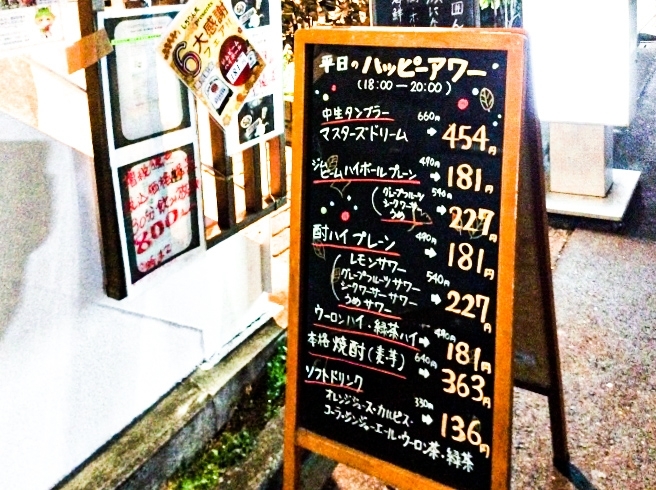 平日のハッピーアワー
(18:00―20:00)
中生タンブラー 660円
マスターズドリーム → 454円
ジムビームハイボールプレーン 490円 → 181円
(グレープフルーツ 540円
シークワーサー
うめ → 227円
酎ハイプレーン 490円 → 181円
(レモンサワー
グレープフルーツサワー 540円
シークワーサーサワー → 227円
うめサワー
ウーロンハイ・緑茶ハイ 490円 → 181円
本格焼酎(麦芋) 640円 → 363円
ソフトドリンク 330円
オレンジジュース・カルピス・ → 136円
コーラ・ジンジャーエール・ウーロン茶・緑茶
6
大感謝
30分飲み放題
800